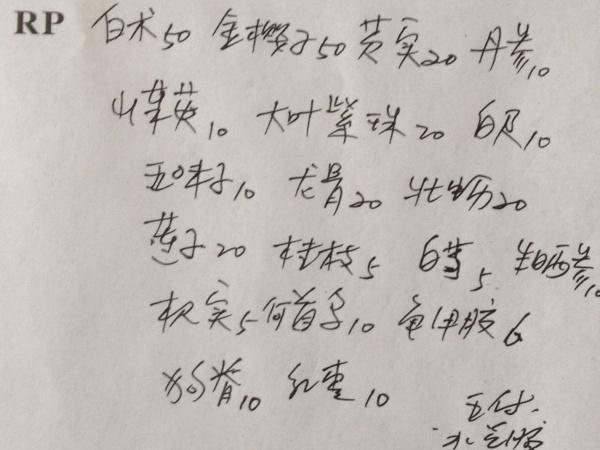 RP 白术50 金樱子50 芡实20 丹参10
山茱萸10 大叶紫珠20 白及10
五味子10 龙骨20 牡蛎20
莲子20 桂枝5 白芍5 生晒参10
枳实5 何首乌10 龟甲胶6
狗脊10 红枣10
五付.
水煎服